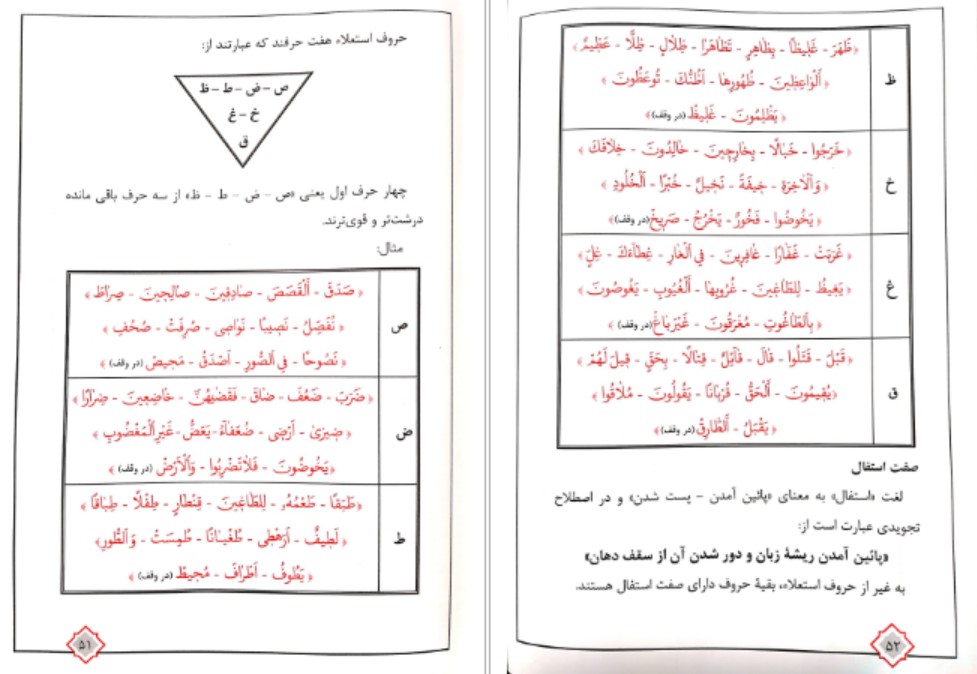 حروف استعلاء هفت حرفند که عبارتند از:
ص - ض - ط - ظ
خ - غ
ق
چهار حرف اول یعنی «ص - ض - ط - ظ» از سه حرف باقی مانده
درشت‌تر و قوی‌ترند.
مثال:
ص
﴿ صَدَقَ - اَلْقَصَصَ - صادِقینَ - صالِحینَ - صِراطَ ﴾
﴿ نُفَصِّلُ - نَصیبًا - نَواصی - صُرِفَتْ - صُحُفِ ﴾
﴿ نَصُوحًا - فِی الصُّورِ - اَصْدَقُ - مَحیصْ (در وقف) ﴾
ض
﴿ ضَرَبَ - ضَعُفَ - ضاقَ - فَقَضیٰهُنَّ - خاضِعینَ - ضِرارًا ﴾
﴿ ضیزیٰ - اَرْضی - ضُعَفاءُ - بَعْضُ - غَیْرِالْمَغْضُوبِ ﴾
﴿ یَخُوضُونَ - فَلاتَضْرِبُوا - وَالْاَرْضْ (در وقف) ﴾
ط
﴿ طَبَقًا - طَعْمُهُ - لِلطّاغینَ - قِنْطارٍ - طِفْلًا - طِباقًا ﴾
﴿ لَطیفٌ - اَرَهْطی - طُغْیانًا - طُمِسَتْ - وَالطُّورِ﴾
﴿ یَطُوفُ - اَطْرافَ - مُحیطْ (در وقف) ﴾
۵۱
ظ
﴿ ظَهَرَ - غَلیظًا - بِظاهِرٍ - تَظاهَرا - ظِلالٍ - ظِلًّا - عَظیمٌ ﴾
﴿ اَلْواعِظینَ - ظُهُورِها - اَظُنُّكَ - تُوعَظُونَ ﴾
﴿ یَظْلِمُونَ - غَلیظْ (در وقف) ﴾
خ
﴿ خَرَجُوا - خَبالًا - بِخارِجینَ - خالِدُونَ - خِلافَكَ ﴾
﴿ وَالْاخِرَةِ - خیفَةً - نَخیلٌ - خُبْرًا - اَلْخُلُودِ ﴾
﴿ یَخُوضُوا - فَخُورٌ - یَخْرُجُ - صَریخْ(در وقف) ﴾
غ
﴿ غَرَبَتْ - غَفّارًا - غافِرینَ - فِی الْغارِ - غِطاءَكَ - غِلٍّ ﴾
﴿ یَغیظُ - لِلطّاغینَ - غُرُوبِها - اَلْغُیُوبِ - یَغُوصُونَ ﴾
﴿ بِالطّاغُوتِ - مُغْرَقُونَ - غَیْرَباغْ (در وقف) ﴾
ق
﴿ قَبْلَ - قَتَلُوا - قالَ - قائِلٌ - قِتالًا - بِحَقٍّ - قیلَ لَهُمْ ﴾
﴿ یُقیمُونَ - اَلْحَقُّ - قُرْبانًا - یَقُولُونَ - مُلاقُوا ﴾
﴿ یَقْبَلُ - اَلطّارِقْ (در وقف) ﴾
صفت استفال
لغت «استفال» به معنای «پائین آمدن - پست شدن» و در اصطلاح
تجویدی عبارت است از:
«پائین آمدن ریشهٔ زبان و دور شدن آن از سقف دهان»
به غیر از حروف استعلاء، بقیهٔ حروف دارای صفت استفال هستند.
۵۲